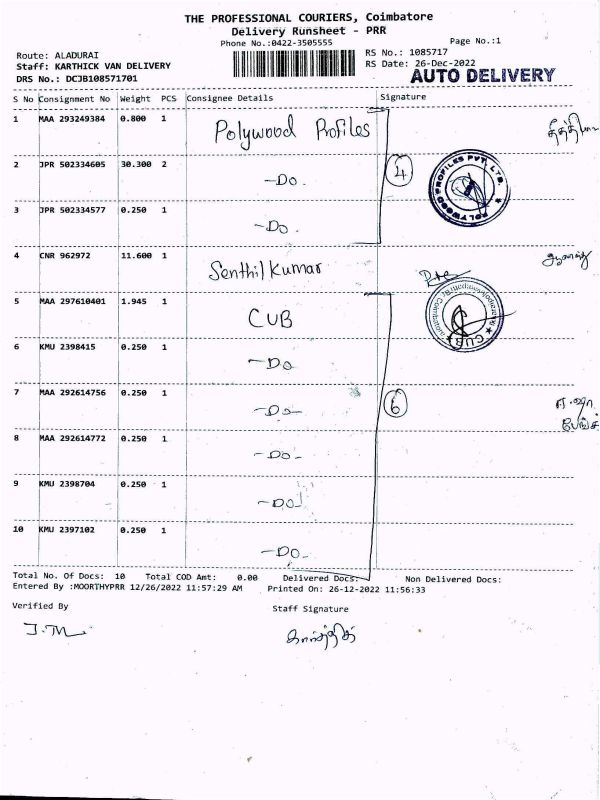 THE PROFESSIONAL COURIERS, Coimbatore
Delivery Runsheet - PRR
Phone No.:0422-3505555
Page No.:1
Route: ALADURAI
RS No.: 1085717
Staff: KARTHICK VAN DELIVERY
RS Date: 26-Dec-2022
DRS No.: DCJB108571701
AUTO DELIVERY
S No Consignment No Weight PCS Consignee Details Signature
1 MAA 293249384 0.800 1 Polywood Profiles
2 JPR 502334605 30.300 2 -Do. 4
POLYWOOD PROFILES PVT. LTD.
3 JPR 502334577 0.250 1 -Do.
4 CNR 962972 11.600 1 Senthil Kumar
5 MAA 297610401 1.945 1 CUB
CUB
6 KMU 2398415 0.250 1 -Do
7 MAA 292614756 0.250 1 -Do- 6
8 MAA 292614772 0.250 1 -Do-
9 KMU 2398704 0.250 1 -Do
10 KMU 2397102 0.250 1 -Do-
Total No. Of Docs: 10 Total COD Amt: 0.00 Delivered Docs: Non Delivered Docs:
Entered By :MOORTHYPRR 12/26/2022 11:57:29 AM Printed On: 26-12-2022 11:56:33
Verified By Staff Signature
J.M கார்த்திக்